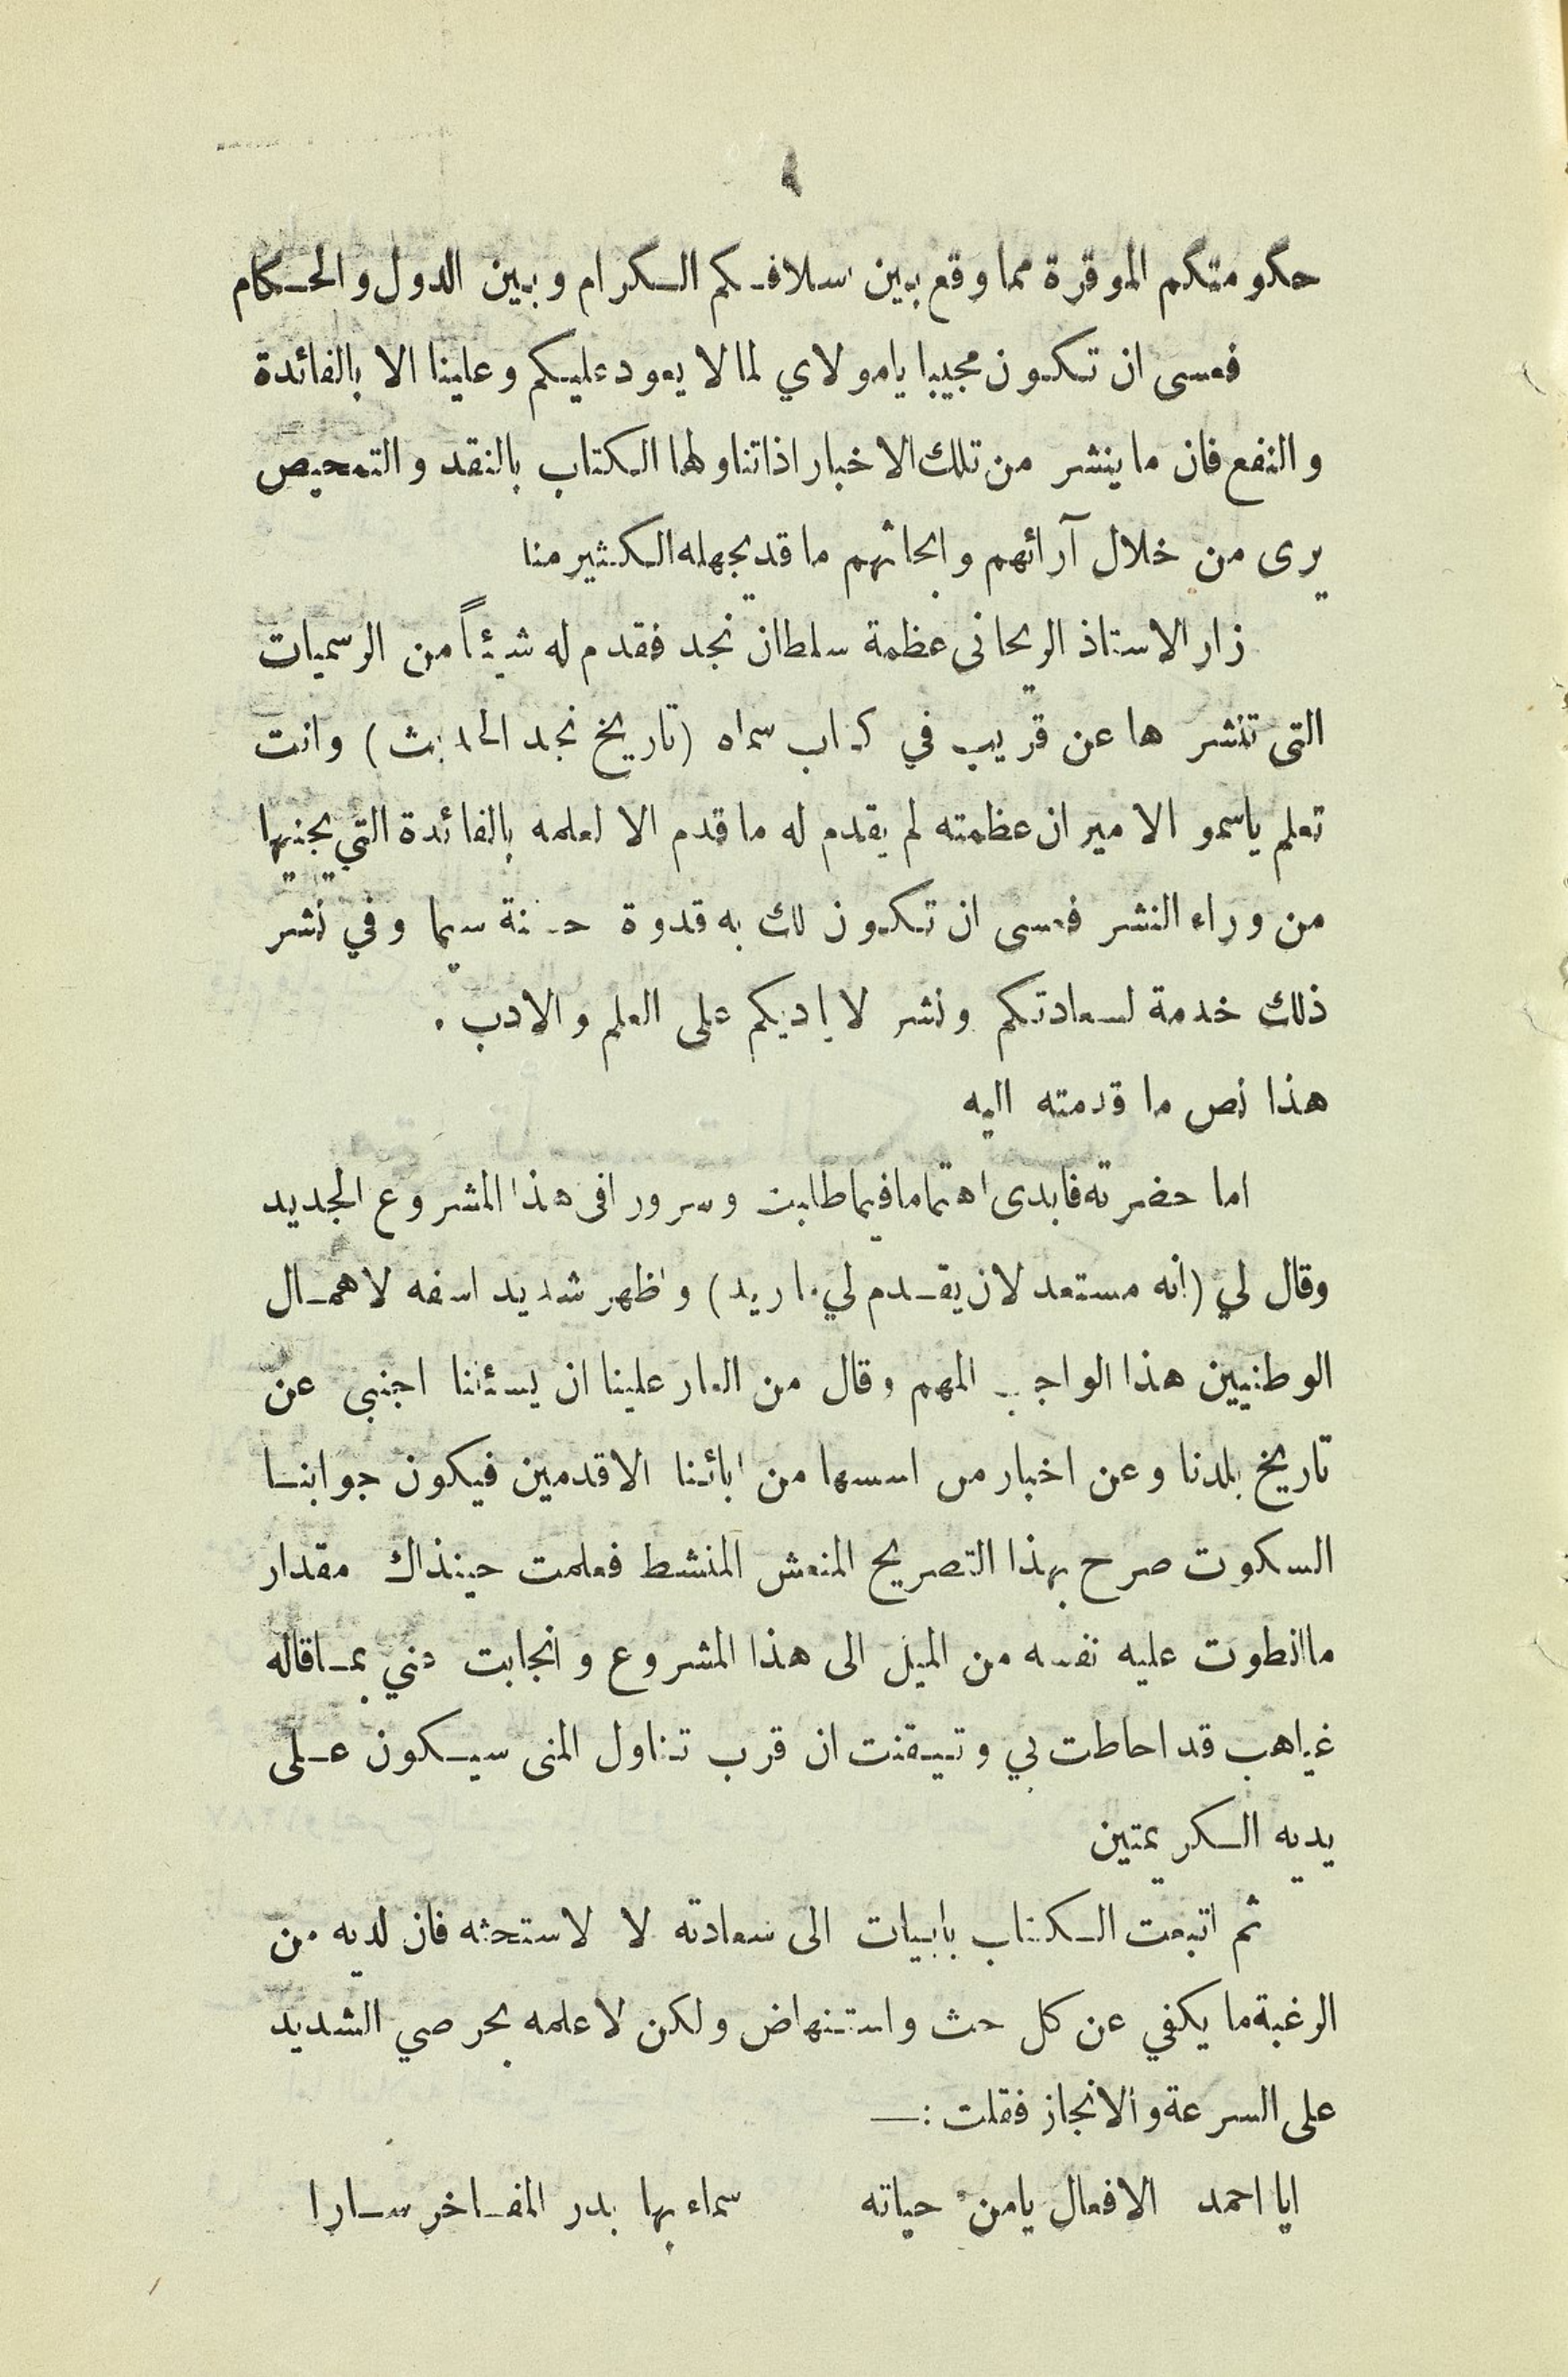 ٩
حكومتكم الموقرة مما وقع بين اسلافكم الكرام وبين الدول والحكام
فعسى ان تكون مجيبا يامولاي لما لا يعود عليكم وعلينا الا بالفائدة
والنفع فان ما ينشر من تلك الاخبار اذا تناولها الكتاب بالنقد والتمحيص
يرى من خلال آرائهم وابحاثهم ما قد يجهله الكثير منا
زار الاستاذ الريحانى عظمة سلطان نجد فقدم له شيئاً من الرسميات
التى تنشرها عن قريب في كتاب سماه (تاريخ نجد الحديث) وانت
تعلم ياسمو الامير ان عظمته لم يقدم له ما قدم الا لعلمه بالفائدة التي يجنيها
من وراء النشر فعسى ان تكون لك به قدوة حسنة سيما وفي نشر
ذلك خدمة لسعادتكم ونشر لاياديكم على العلم والادب .
هذا نص ما قدمته اليه
اما حضرته فابدى اهتماما فيما طلبت وسرورا فى هذا المشروع الجديد
وقال لي (انه مستعد لان يقدم لي ما اريد) واظهر شديد اسفه لاهمال
الوطنيين هذا الواجب المهم وقال من العار علينا ان يسئلنا اجنبى عن
تاريخ بلدنا وعن اخبار من اسسها من ابائنا الاقدمين فيكون جوابنا
السكوت صرح بهذا التصريح المنعش المنشط فعلمت حينذاك مقدار
ما انطوت عليه نفسه من الميل الى هذا المشروع وانجابت عني بما قاله
غياهب قد احاطت بي وتيقنت ان قرب تناول المنى سيكون على
يديه الكريمتين
ثم اتبعت الكتاب بابيات الى سعادته لا لاستحثه فان لديه من
الرغبة ما يكفي عن كل حث واستنهاض ولكن لاعلمه بحرصي الشديد
على السرعة والانجاز فقلت :—
ايا احمد الافعال يامن حياته سماء بها بدر المفاخر سارا